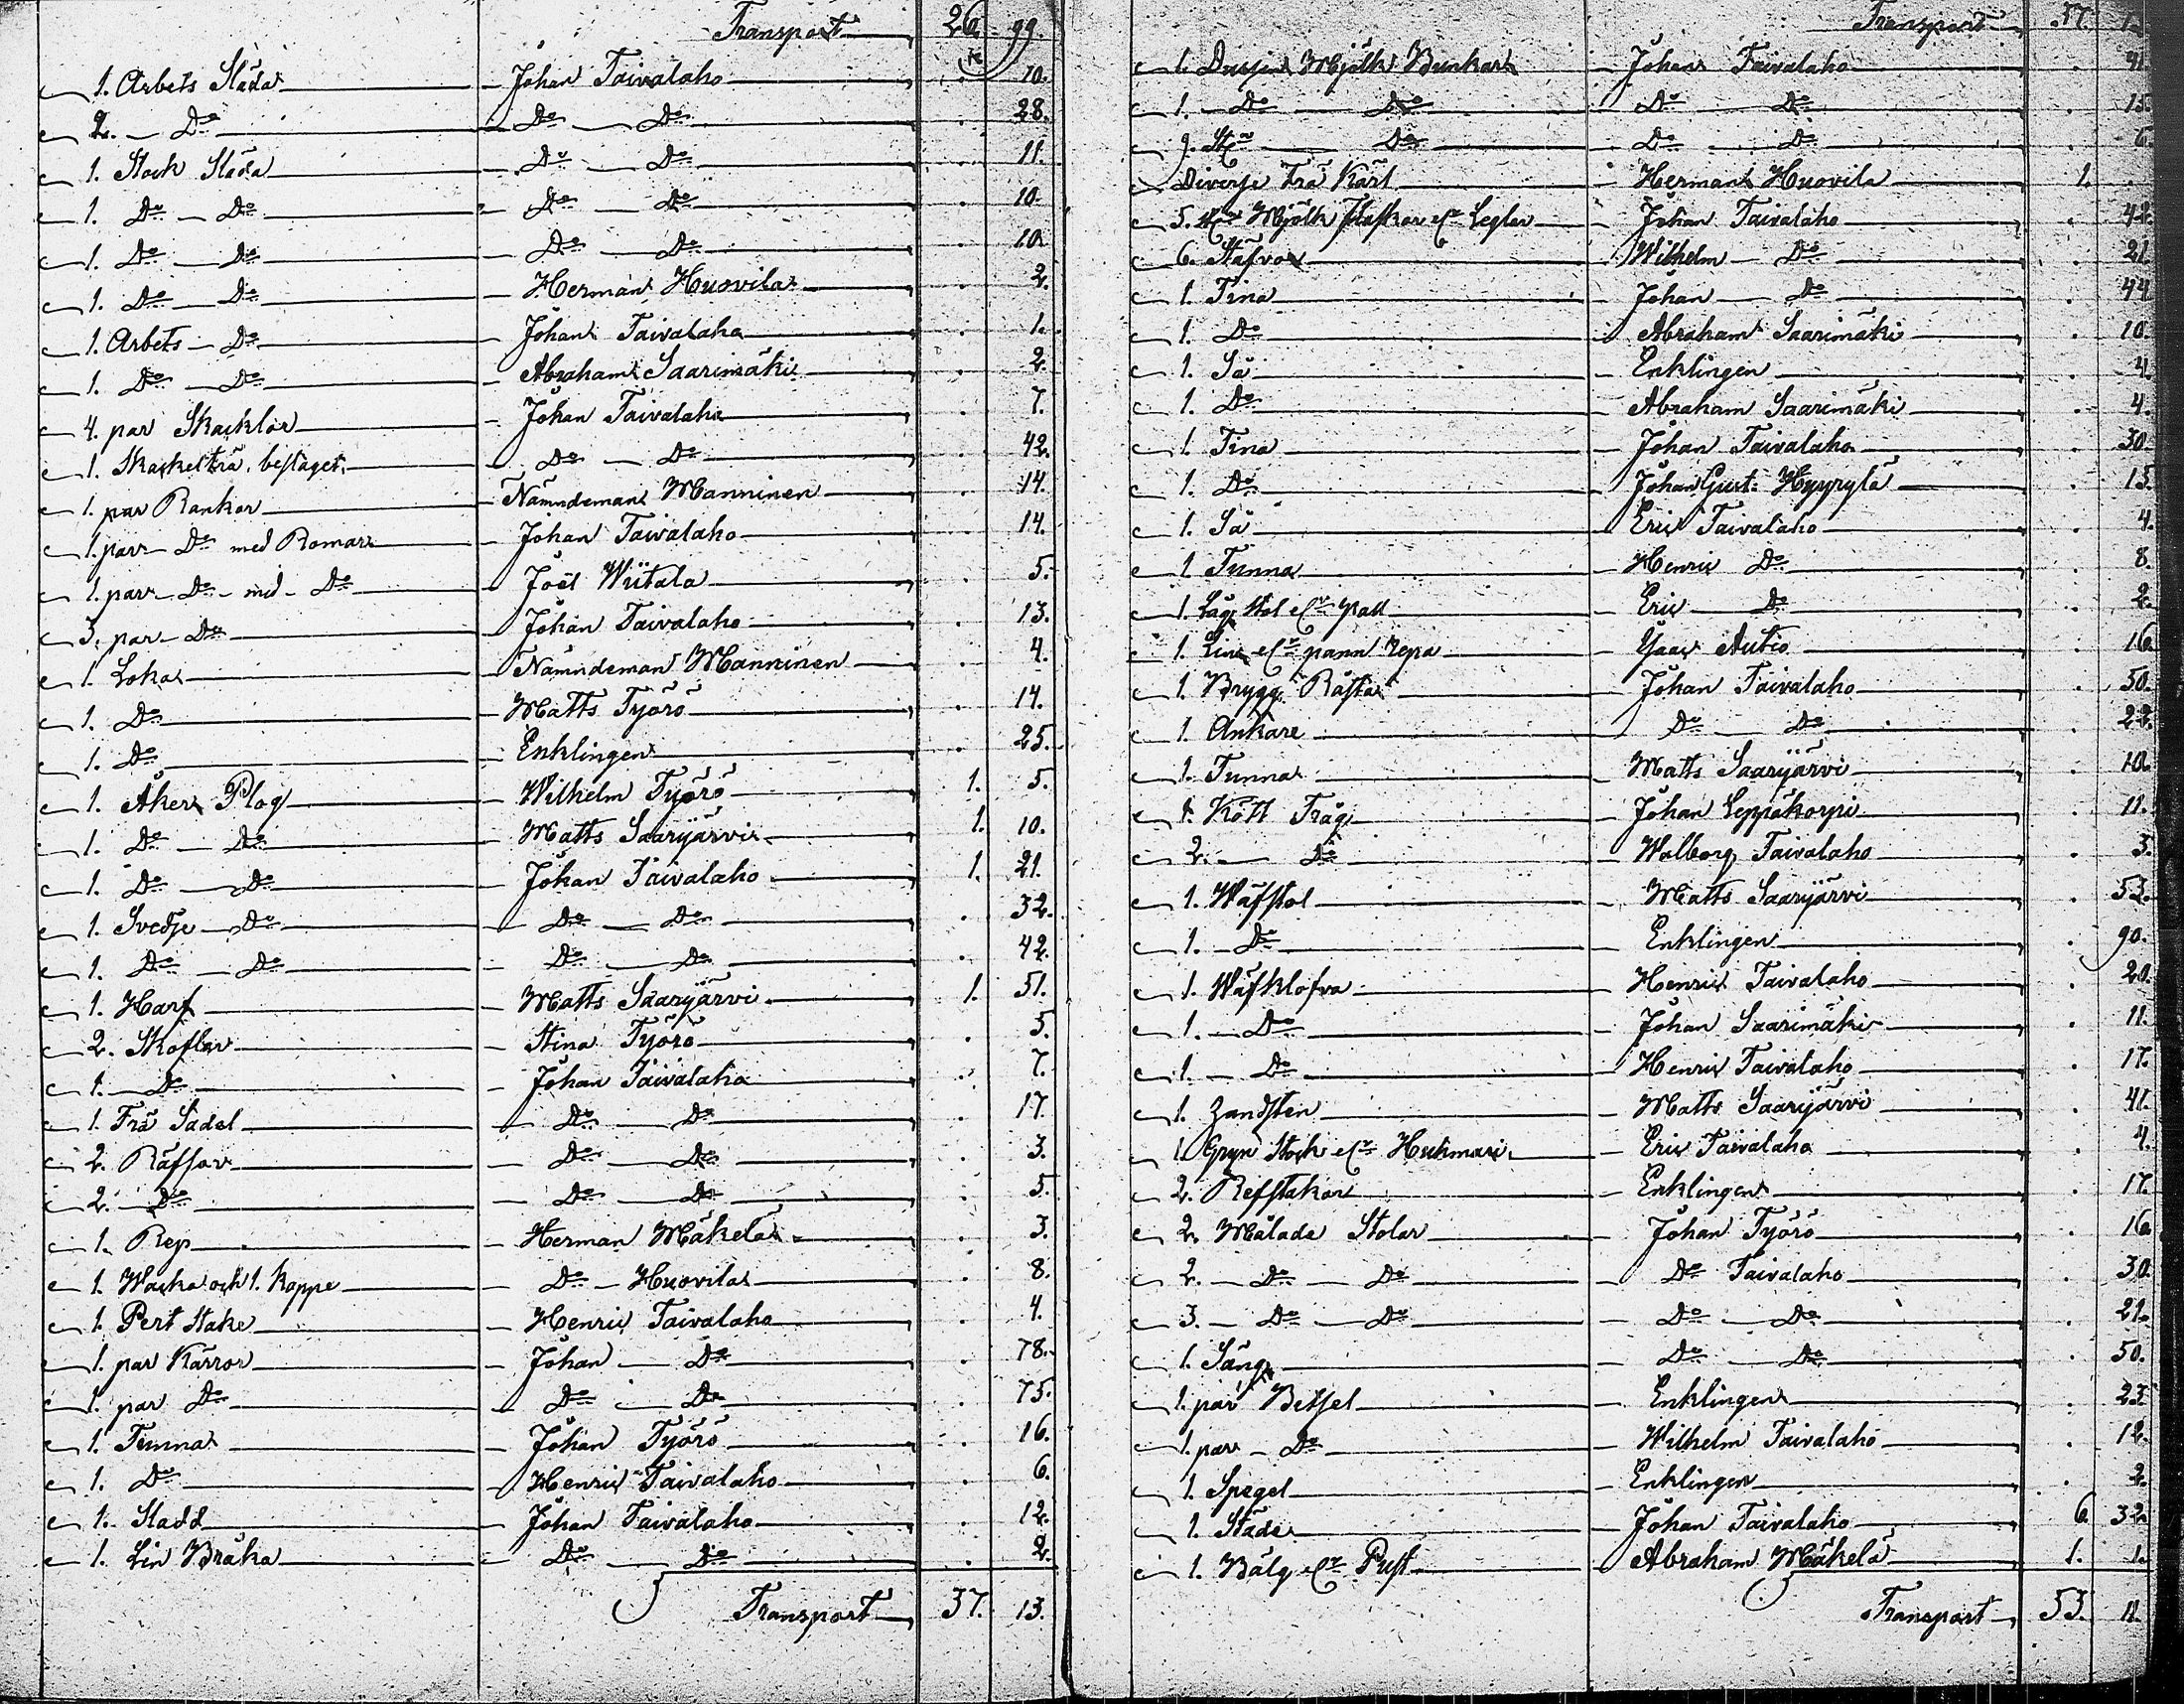 Transport 26. 99.
1. Arbets Släda Johan Taivalaho . 10.
2. Do Do Do . 28.
1. Stock Släda Do Do . 11.
1. Do Do Do Do . 10.
1. Do Do Do Do . 10.
1. Do Do Herman Huovila . 2.
1. Arbets Do Johan Taivalaho . 1.
1. Do Do Abraham Saarimäki . 2.
4. par Skacklor Johan Taivalaho . 7.
1. Skackelträ, beslaget. Do Do . 42.
1. par Rankor Nämndeman Manninen . 14.
1. par Do med Romar Johan Taivalaho . 14.
1. par Do med Do Joël Wiitala . 5.
3. par Do Johan Taivalaho . 13.
1. Loka Nämndeman Manninen . 4.
1. Do Matts Työrö . 14.
1. Do Enklingen . 25.
1. Åker Plog Wilhelm Työrö 1. 5.
1. Do Do Matts Saarijärvi 1. 10.
1. Do Do Johan Taivalaho 1. 21.
1. Svedje Do Do Do . 32.
1. Do Do Do Do . 42.
1. Harf Matts Saarijärvi 1. 51.
2. Skoflar Stina Työrö . 5.
1. Do Johan Taivalaho . 7.
1. Trä Sadel Do Do . 17.
2. Räfsor Do Do . 3.
2. Do Do Do . 5.
1. Rep Herman Mäkelä . 3.
1. Wacka och 1. Kappe Do Huovila . 8.
1. Pert Stake Henric Taivalaho . 4.
1. par Kärror Johan Do . 78.
1. par Do Do Do . 75.
1. Tunna Johan Työrö . 16.
1. Do Henric Taivalaho . 6.
1. Stadd Johan Taivalaho . 12.
1. Lin Bråka Do Do . 2.
Transport 37. 13.
Transport 37.
1. Dussin Mjölk Bunkar Johan Taivalaho . 91.
1. Do Do Do Do . 15.
9. St Do Do Do . 6.
Diverse Trä Kärl Herman Huovila 1. .
5. Mjölk flaskor Legler Johan Taivalaho . 42.
6. Stäfvor Wilhelm Do . 21.
1. Tina Johan Do . 44.
1. Do Abraham Saarimäki . 10.
1. Så Enklingen . 4.
1. Do Abraham Saarimäki . 4.
1. Tina Johan Taivalaho . 30.
1. Do Johan Gust. Hyyrylä . 15.
1. Så Eric Taivalaho . 4.
1. Tunna Henric Do . 8.
1. Låg Stol pall Eric Do . 2.
1. pann repa Autio . 16.
1. Brygg Råsta Johan Taivalaho . 50.
1. Ankare Do Do . 22.
1. Tunna Matts Saarijärvi . 10.
1. Kött Tråg Johan Leppäkorpi . 11.
2. Do Walborg Taivalaho . 3.
1. Wäfstol Matts Saarijärvi . 53.
1. Do Enklingen . 90.
1. Wäfklofva Henric Taivalaho . 20.
1. Do Johan Saarimäki . 11.
1. Do Henric Taivalaho . 17.
1. Zandsten Matts Saarijärvi . 41.
1. Gryn Stock Huhmari Eric Taivalaho . 4.
2. Refstakar Enklingen . 17.
2. Målade Stolar Johan Työrö . 16.
2. Do Do Do Taivalaho . 30.
3. Do Do Do Do . 21.
1. Säng Do Do . 50.
1. par Betsel Enklingen . 23.
1. par Do Wilhelm Taivalaho . 12.
1. Spegel Enklingen . 2.
1. Städe Johan Taivalaho 6. 32.
1. Bälg Pust Abraham Mäkelä 1. 1.
Transport 53. 11.